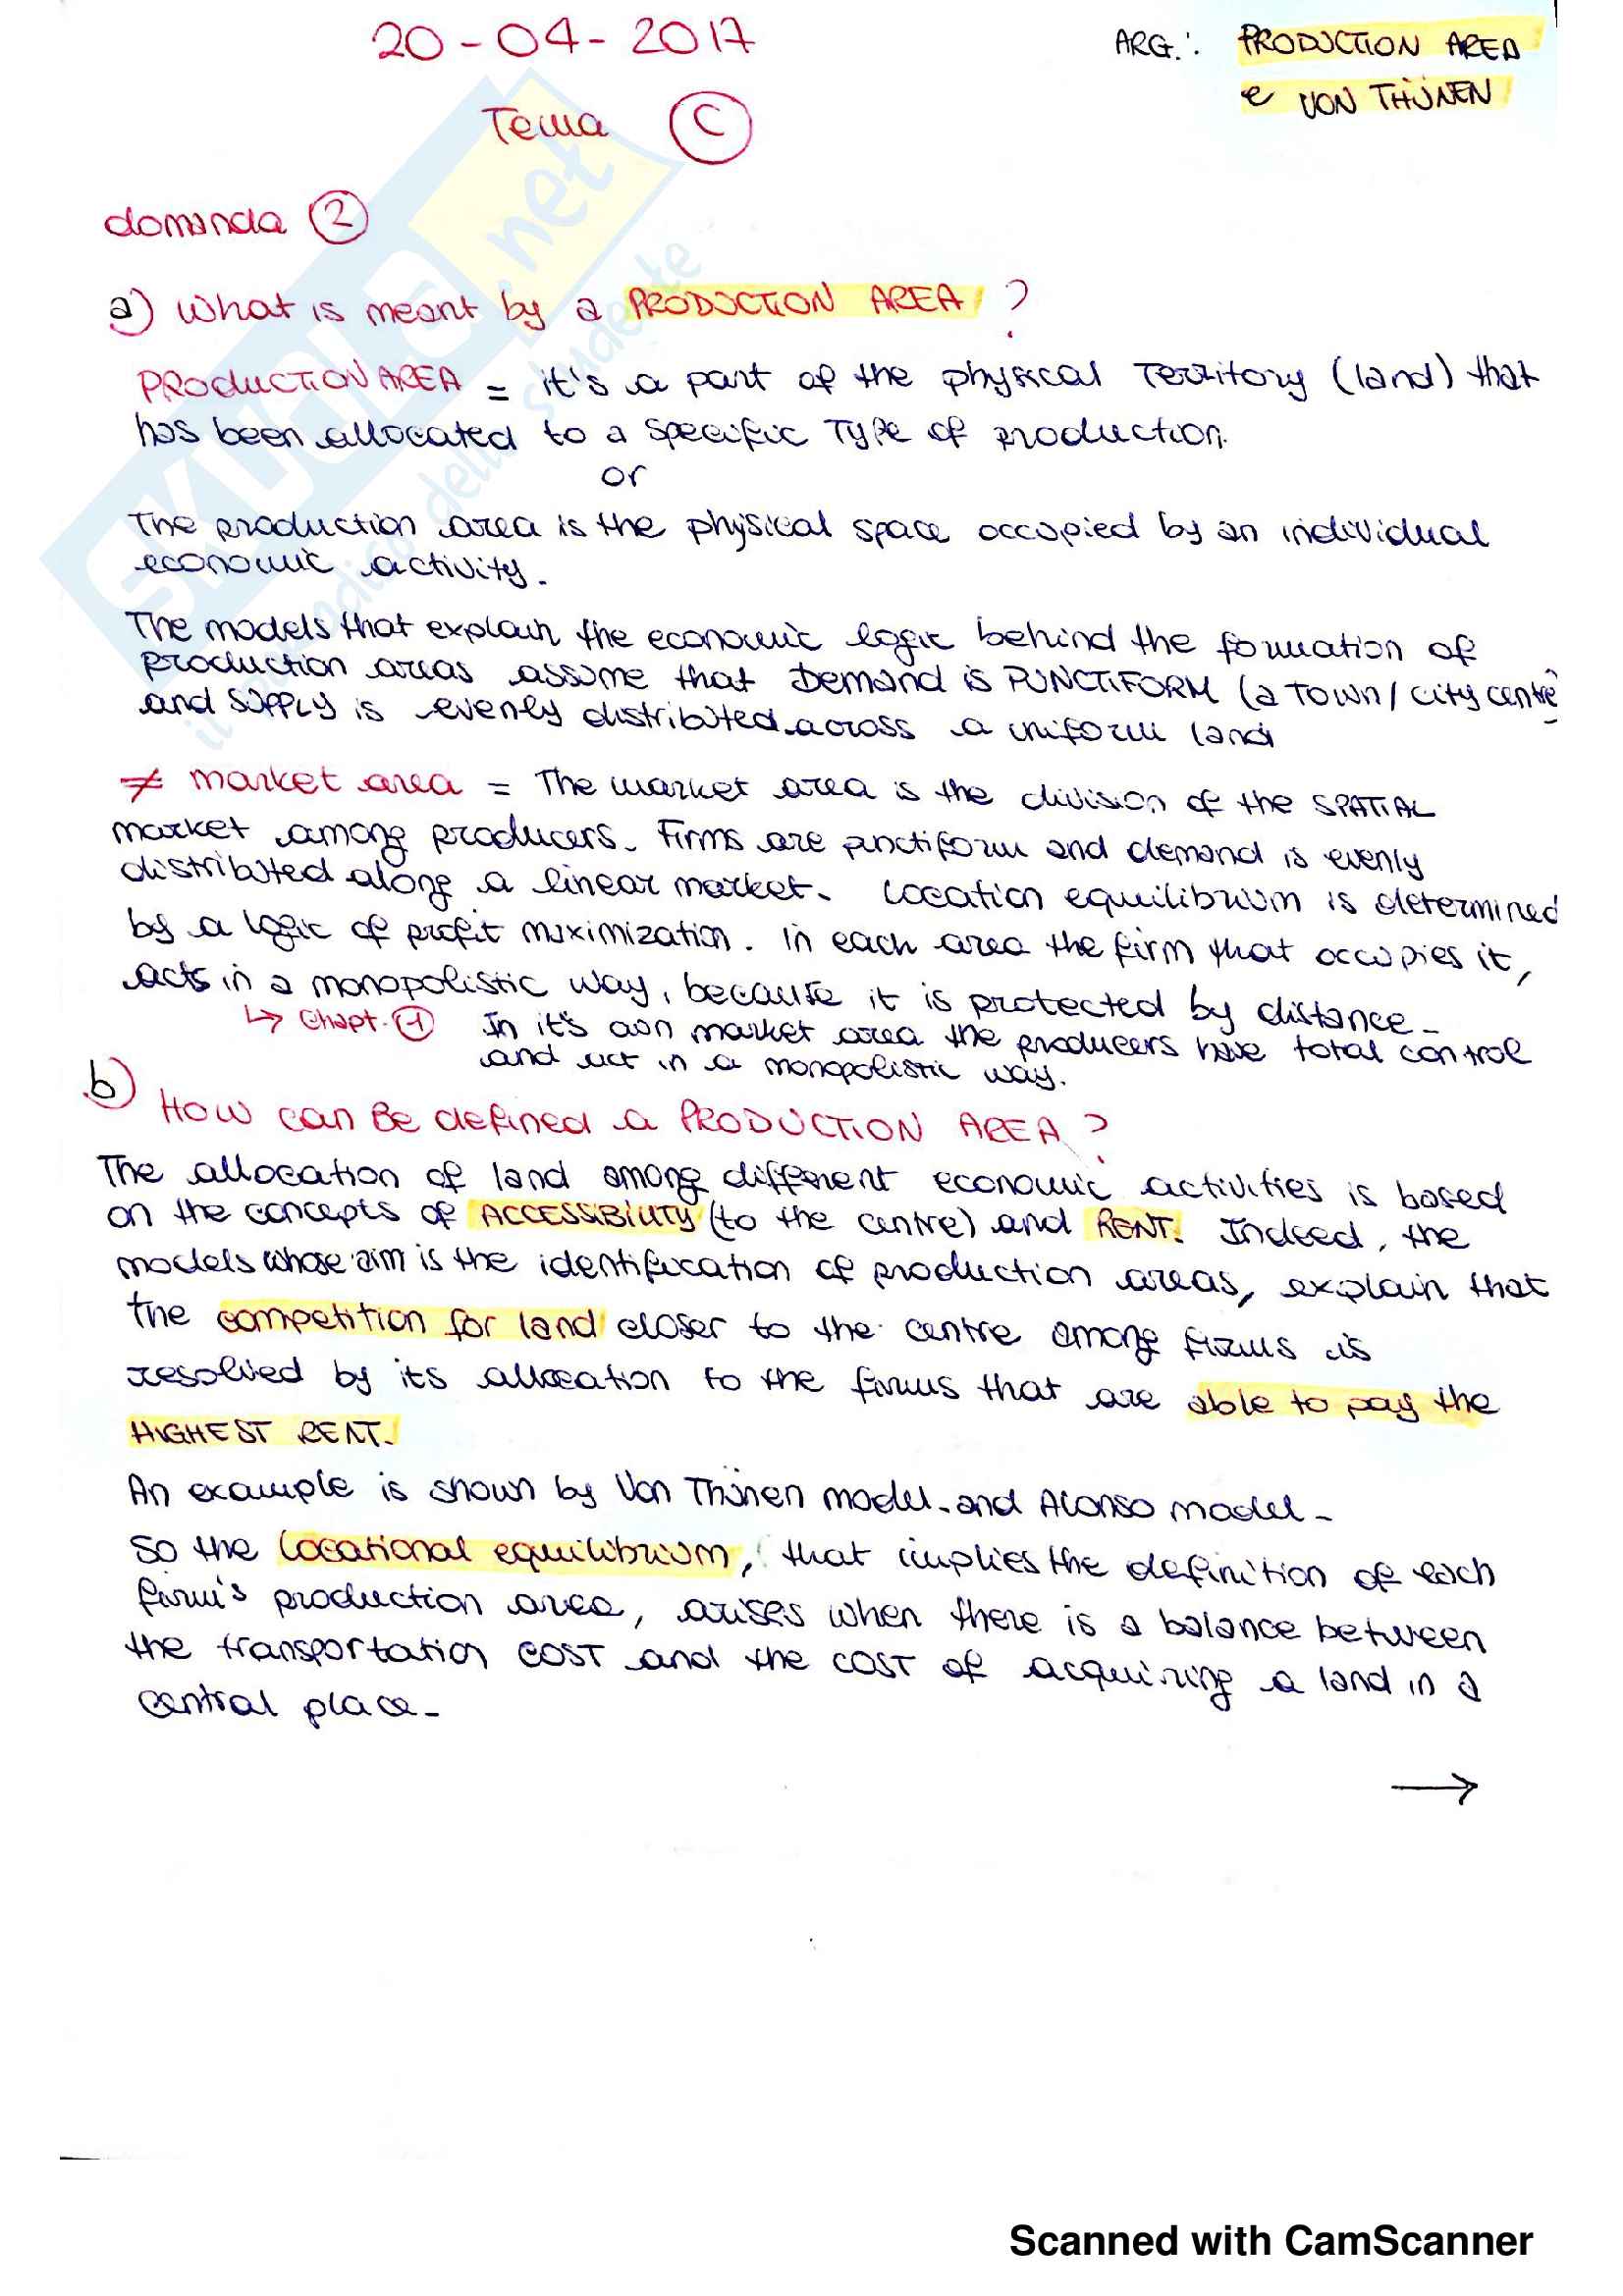 20-04-2017
ARG.: PRODUCTION AREA
e VON THÜNEN
Tema C
domanda 2
a) What is meant by a PRODUCTION AREA ?
PRODUCTION AREA = it's a part of the physical territory (land) that
has been allocated to a specific type of production.
or
The production area is the physical space occupied by an individual
economic activity.
The models that explain the economic logic behind the formation of
production areas assume that Demand is PUNCTIFORM (a town/city centre)
and SUPPLY is evenly distributed across a uniform land
≠ market area = The market area is the division of the SPATIAL
market among producers. Firms are punctiform and demand is evenly
distributed along a linear market. Location equilibrium is determined
by a logic of profit maximization. In each area the firm that occupies it,
acts in a monopolistic way, because it is protected by distance-
↳ Chapt. 1 In it's own market area the producers have total control
and act in a monopolistic way.
b) How can Be defined a PRODUCTION AREA ?
The allocation of land among different economic activities is based
on the concepts of ACCESSIBILITY (to the centre) and RENT. Indeed, the
models whose aim is the identification of production areas, explain that
the competition for land closer to the centre among firms is
resolved by its allocation to the firms that are able to pay the
HIGHEST RENT.
An example is shown by Von Thünen model-and Alonso model-
So the locational equilibrium, that implies the definition of each
firm's production area, arises when there is a balance between
the transportation cost and the cost of acquiring a land in a
central place-
→
SKUOLA.net
il paradiso dello studente
Scanned with CamScanner